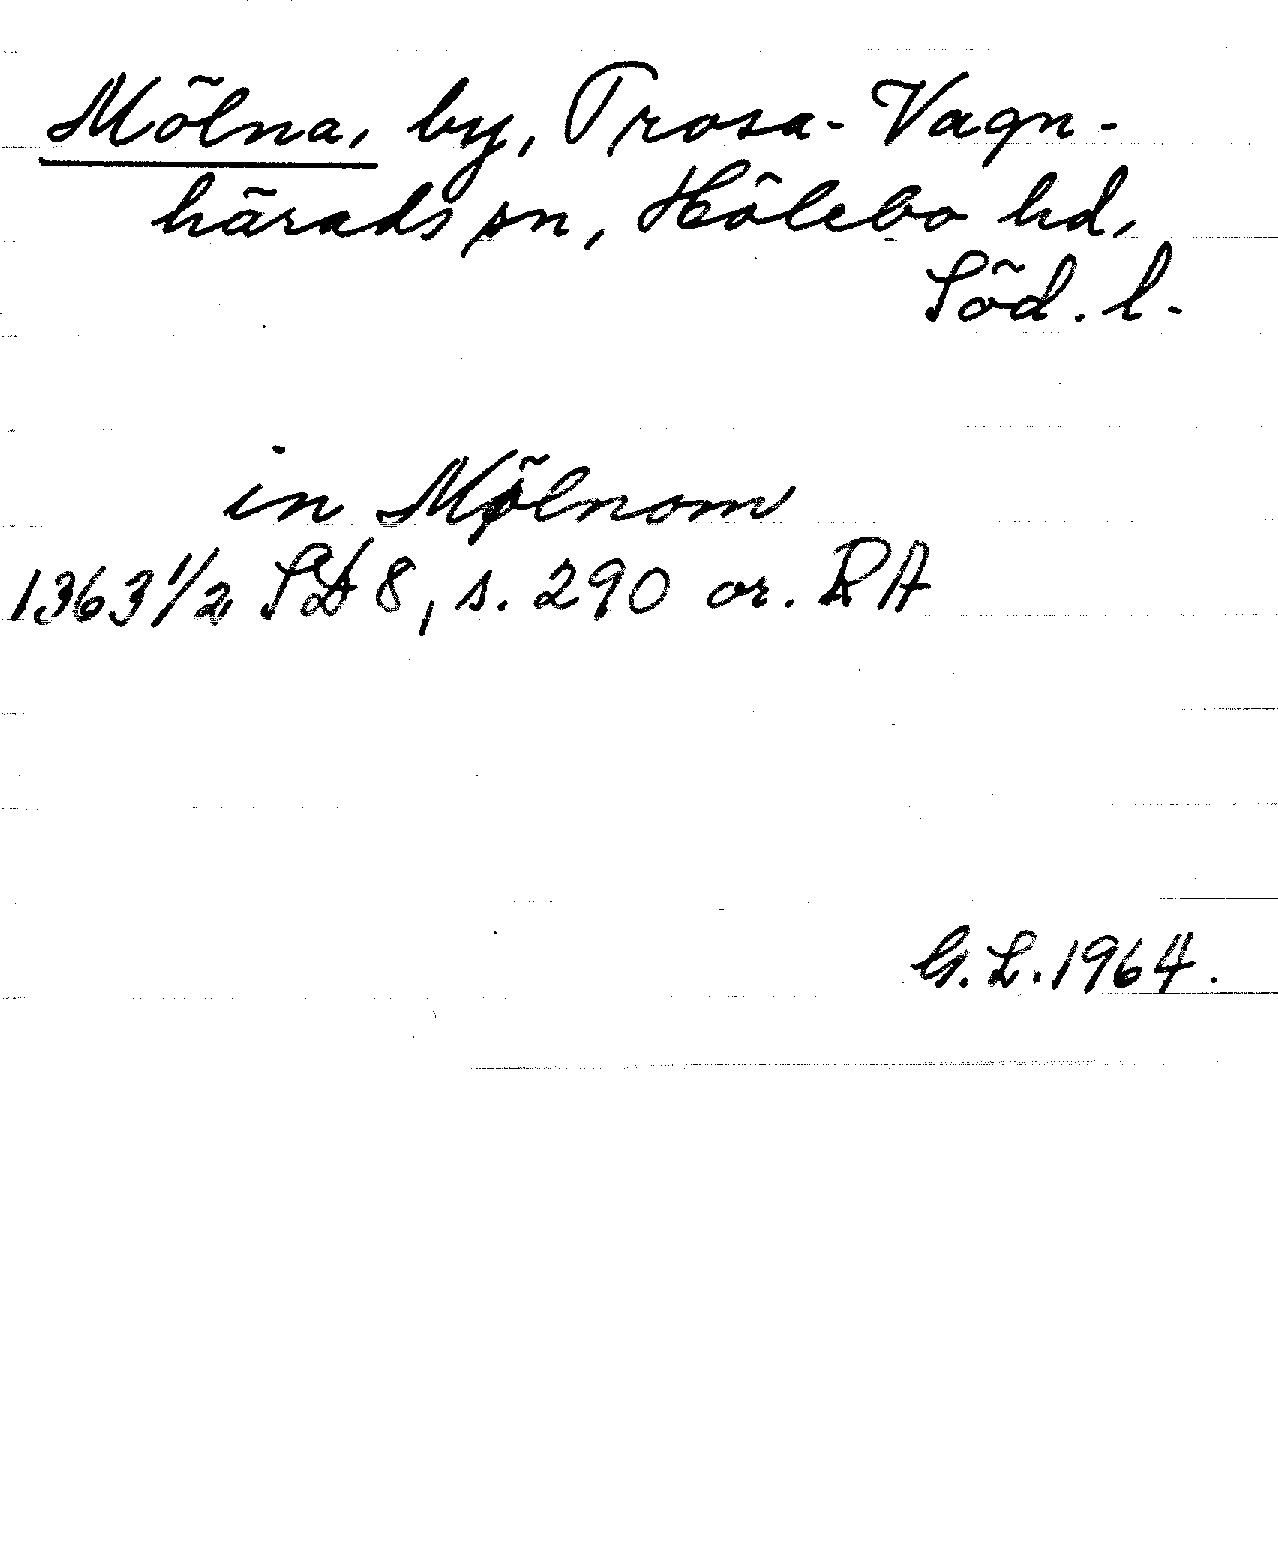 Mölna, by, Trosa-Vagn-
härads sn, Hölebo hd,
Söd. l.
in Mø̈lnom
1363 1/2 SD 8, s. 290 or. RA
G. L. 1964.